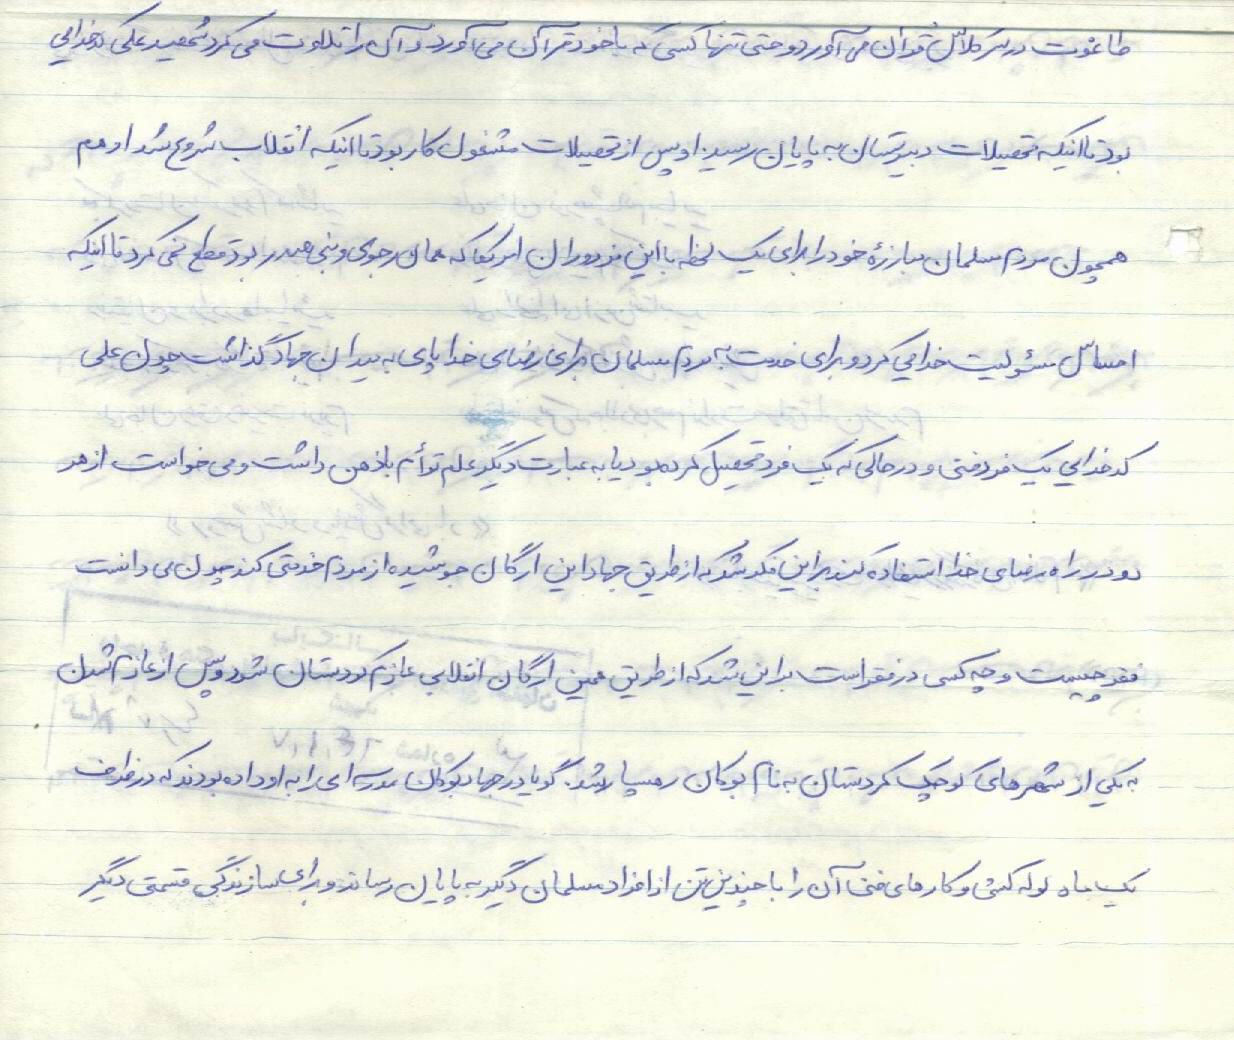 طاغوت در سر کلاس قرآن می آورد و حتی تنها کسی که با خود قرآن می آورد و آن را تلاوت می کرد شهید علی کدخدایی
بود تا اینکه تحصیلات دبیرستان به پایان رسید. او پس از تحصیلات مشغول کار بود تا اینکه انقلاب شروع شد او هم
همچون مردم مسلمان مبارزهٔ خود را برای یک لحظه با این مزدوران امریکا که همان رجوی و بنی صدر بود قطع نمی کرد تا اینکه
احساس مسئولیت خدایی کرد و برای خدمت به مردم مسلمان برای رضای خدا پای به میدان جهاد گذاشت چون علی
کدخدایی یک فرد فنی و در حالی که یک فرد تحصیل کرده بود یا به عبارت دیگر علم توأم با ذهن داشت و می خواست از هر
دو در راه رضای خدا استفاده کند بر این فکر شد که از طریق جهاد این ارگان جوشیده از مردم خدمتی کند چون می دانست
فقر چیست و چه کسی در فقر است بر این شد که از طریق همین ارگان انقلابی عازم کردستان شود و پس از عازم شدن
به یکی از شهرهای کوچک کردستان به نام بوکان رهسپار شد. گویا در جهاد بوکان مدرسه ای را به او داده بودند که در ظرف
یک ماه لوله کشی و کارهای فنی آن را با چندین تن از افراد مسلمان دیگر به پایان رساند و برای سازندگی قسمتی دیگر